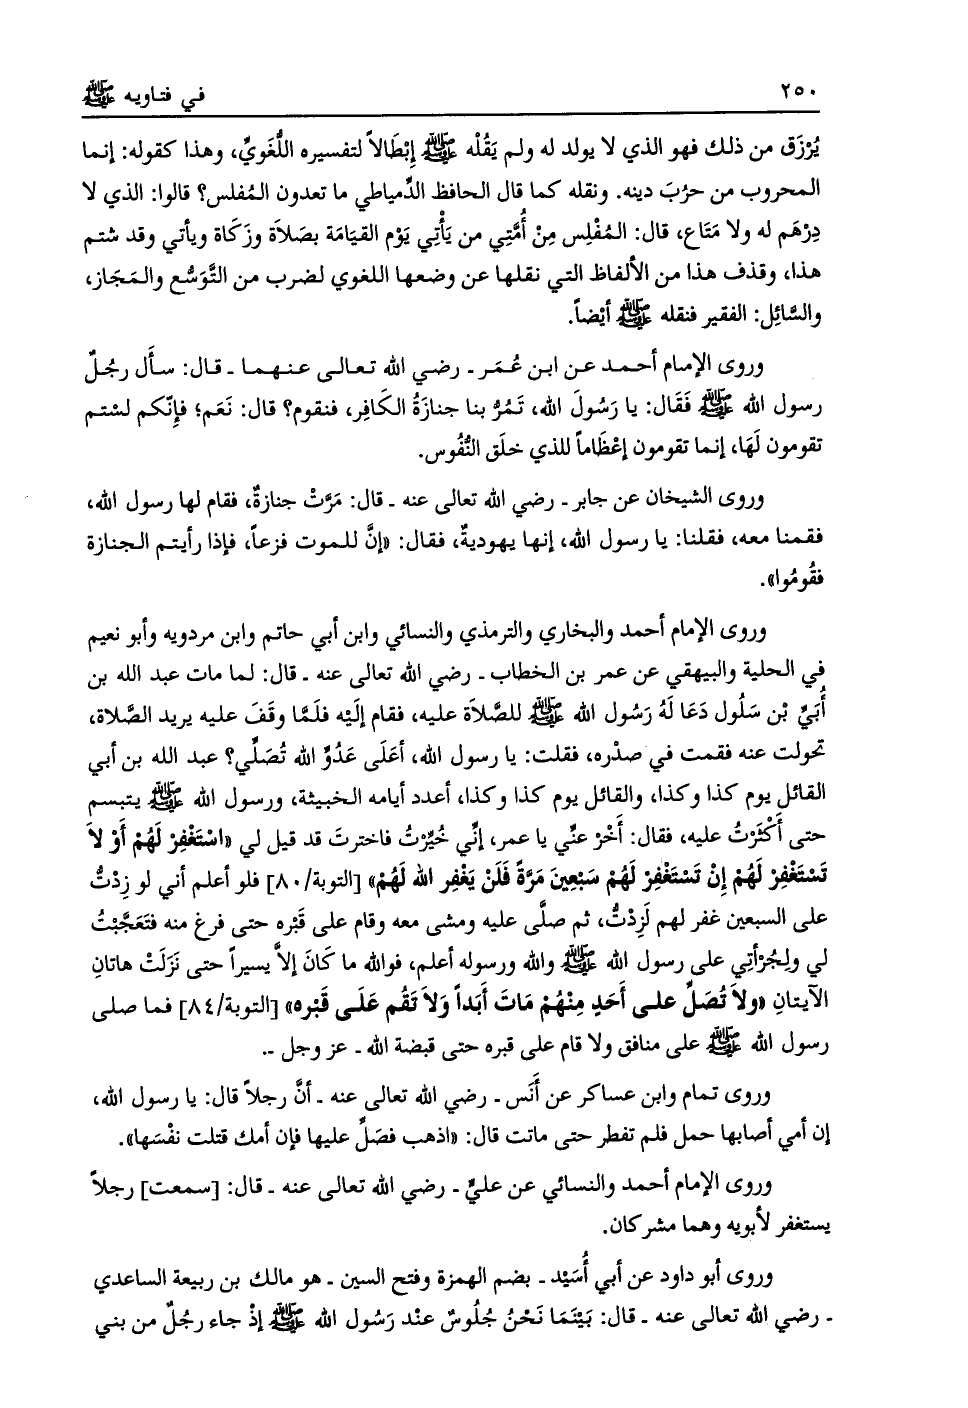 ٢٥٠ في فتاويه ﷺ
يُرْزَق من ذلك فهو الذي لا يولد له ولم يَقُلْه ﷺ إبْطَالاً لتفسيره اللُّغَويِّ، وهذا كقوله: إنما
المحروب من حرُبَ دينه. ونقله كما قال الحافظ الدِّمياطي ما تعدون المُفلس؟ قالوا: الذي لا
دِرْهَم له ولا مَتَاع، قال: المُفْلِس مِنْ أُمَّتِي من يَأْتِي يَوْم القيَامَة بصَلاَة وزَكَاة ويأتي وقد شتم
هذا، وقذف هذا من الألفاظ التي نقلها عن وضعها اللغوي لضرب من التَّوَسُّع والمَجَاز،
والسَّائِل: الفقير فنقله ﷺ أيْضاً.
وروى الإمام أحمد عن ابن عُمَر ـ رضي الله تعالى عنهما ـ قال: سأَل رجُلٌ
رسول الله ﷺ فَقَال: يا رَسُولَ الله، تَمُرُّ بنا جنازَةُ الكَافِر، فنقوم؟ قال: نَعَم؛ فإنّكم لسْتم
تقومون لَهَا، إنما تقومون إعْظَاماً للذي خلَق النُّفُوس.
وروى الشيخان عن جابر ـ رضي الله تعالى عنه ـ قال: مَرَّتْ جنازةٌ، فقام لها رسول الله،
فقمنا معه، فقلنا: يا رسول الله، إنها يهوديةٌ، فقال: «إنَّ للموت فزعاً، فإذا رأيتم الجنازة
فقُومُوا».
وروى الإمام أحمد والبخاري والترمذي والنسائي وابن أبي حاتم وابن مردويه وأبو نعيم
في الحلية والبيهقي عن عمر بن الخطاب ـ رضي الله تعالى عنه ـ قال: لما مات عبد الله بن
أُبَيِّ بْن سَلُول دَعَا لَهُ رَسُول الله ﷺ للصَّلاَة عليه، فقام إلَيْه فلَمَّا وقَفَ عليه يريد الصَّلاة،
تحولت عنه فقمت في صدْره، فقلت: يا رسول الله، أعَلَى عَدُوِّ الله تُصَلِّي؟ عبد الله بن أبي
القائل يوم كذا وكذا، والقائل يوم كذا وكذا، أعدد أيامه الخبيثة، ورسول الله ﷺ يتبسم
حتى أَكْثَرْتُ عليه، فقال: أَخْر عنِّي يا عمر، إنِّي خُيِّرْتُ فاخترتَ قد قيل لي «اسْتَغْفِرْ لَهُمْ أَوْ لاَ
تَسْتَغْفِرْ لَهُمْ إنْ تَسْتَغْفِرْ لَهُمْ سَبْعِينَ مَرَّةً فَلَنْ يَغْفِر الله لَهُمْ» [التوبة/٨٠] فلو أعلم أني لو زِدْتُ
على السبعين غفر لهم لَزِدْتُ، ثم صلَّى عليه ومشى معه وقام على قَبْره حتى فرغ منه فتَعَجَّبْتُ
لي ولِجُرْأَتِي على رسول الله ﷺ والله ورسوله أعلم، فوالله ما كَانَ إلاَّ يسيراً حتى نَزَلَتْ هاتانِ
الآيتانِ «ولاَ تُصَلِّ على أَحَدٍ مِنْهُمْ مَاتَ أَبَداً وَلاَ تَقُم عَلَى قَبْره» [التوبة/٨٤] فما صلى
رسول الله ﷺ على منافق ولا قام على قبره حتى قبضة الله ـ عز وجل ـ.
وروى تمام وابن عساكر عن أَنَس ـ رضي الله تعالى عنه ـ أنَّ رجلاً قال: يا رسول الله،
إن أمي أصابها حمل فلم تفطر حتى ماتت قال: «اذهب فصَلِّ عليها فإن أمك قتلت نفْسَها».
وروى الإمام أحمد والنسائي عن عليٍّ ـ رضي الله تعالى عنه ـ قال: [سمعت] رجلاً
يستغفر لأبويه وهما مشركان.
وروى أبو داود عن أبي أُسَيْد ـ بضم الهمزة وفتح السين ـ هو مالك بن ربيعة الساعدي
ـ رضي الله تعالى عنه ـ قال: بَيْنَمَا نَحْنُ جُلُوسٌ عنْد رَسُول الله ﷺ إذْ جاء رجُلٌ من بني